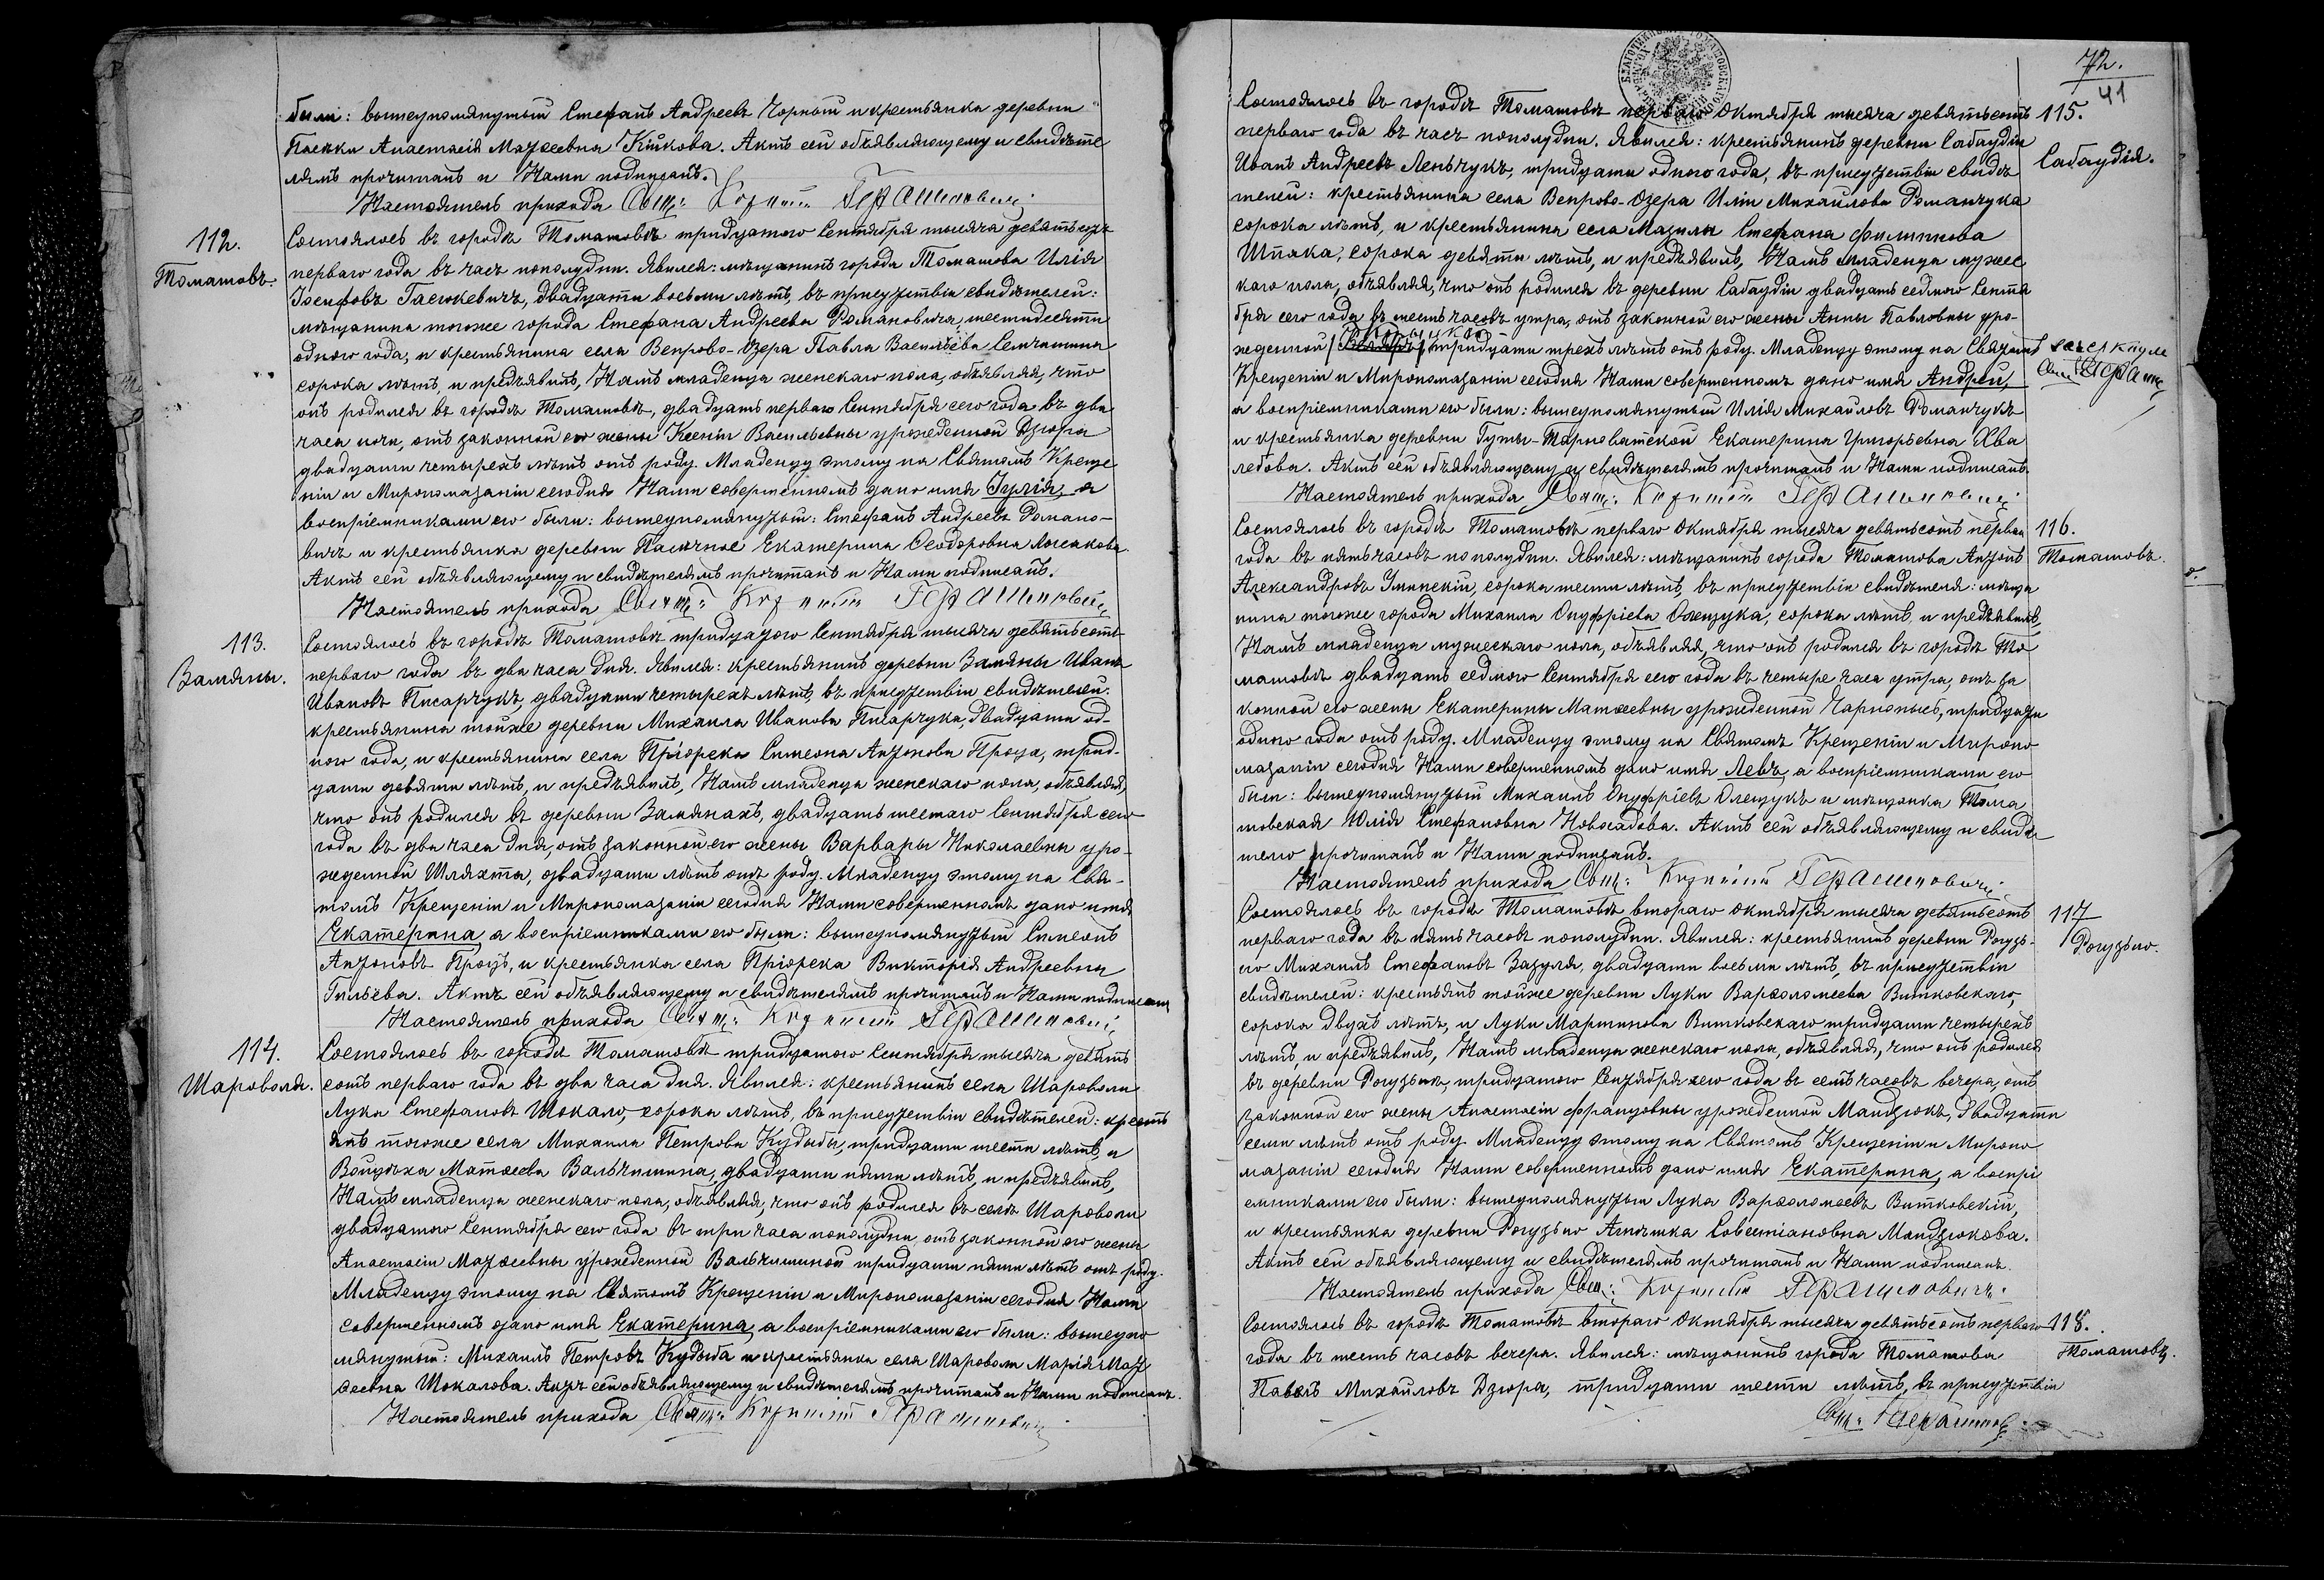 были: вышеупомянутый Стефанъ Андреевъ Чорный и крестьянка деревни
Пасѣки Анастасія Маѳеевна Кушкова. Актъ сей объявляющему и свидѣте
лямъ прочитанъ и Нами подписанъ.
Настоятель прихода Свящ: Корнилій Герашиновичъ
112.
Томашовъ.
Состоялось въ городѣ Томашовѣ тридцатого Сентября тысяча девятьсотъ
перваго года въ часъ пополудни. Явился: мѣщанинъ города Томашова Илія
Іосифовъ Гасюкевичъ, двадцати восьми лѣтъ, въ присутствіи свидѣтелей:
мѣщанина тогоже города Стефана Андреева Романовича, шестидесяти
одного года, и крестьянина села Вепрово-Озера Павла Васильева Семчишина
сорока лѣтъ, и предъявилъ, Намъ младенца женскаго пола, объявляя, что
онъ родился въ городѣ Томашовѣ, двадцать перваго Сентября сего года въ два
часа ночи, отъ законной его жены Ксеніи Васильевны урожденной Дзюра
двадцати четырехъ лѣтъ отъ роду. Младенцу этому на Святомъ Креще
ніи и Мѵропомазаніи сегодня Нами совершенномъ дано имя Іулія, а
воспріемниками его были: вышеупомянутый: Стефанъ Андреевъ Романо-
вичъ и крестьянка деревни Пасѣчное Екатерина Ѳеодоровна
Актъ сей объявляющему и свидѣтелямъ прочитанъ и Нами подписанъ.
Настоятель прихода Свящ: Корнилій Герашиновичъ
113.
Замяны.
Состоялось въ городѣ Томашовѣ тридцатого Сентября тысяча девятьсотъ
перваго года въ два часа дня. Явился: крестьянинъ деревни Замяны Иванъ
Ивановъ Писарчукъ, двадцати четырехъ лѣтъ, въ присутствіи свидѣтелей:
крестьянина тойже деревни Михаила Иванова Писарчука, двадцати од-
ного года, и крестьянина села Пріорска Симеона Антонова Проца, трид-
цати девяти лѣтъ, и предъявилъ, Намъ младенца женскаго пола, объявляя,
что онъ родился въ деревни Замянахъ, двадцать шестаго Сентября сего
года въ два часа дня, отъ законной его жены Варвары Николаевны уро-
жденной Шляхта, двадцати лѣтъ отъ роду. Младенцу этому на Свя-
томъ Крещеніи и Мѵропомазаніи сегодня Нами совершенномъ дано имя
Екатерина а воспріемниками его были: вышеупомянутый Симеонъ
Антоновъ Процъ, и крестьянка села Пріорска Викторія Андреевны
Гильёва. Актъ сей объявляющему и свидѣтелямъ прочитанъ и Нами подписанъ
Настоятель прихода Свящ: Корнилій Герашиновичъ
114.
Шароволя.
Состоялось въ городѣ Томашовѣ тридцатого Сентября тысяча девять
сотъ перваго года въ два часа дня. Явился: крестьянинъ села Шароволи
Лука Стефановъ Шокало, сорока лѣтъ, въ присутствіи свидѣтелей: кресть
янъ тогоже села Михаила Петрова Кудыбы, тридцати шести лѣтъ, и
Войцѣха Матѳеева Вальчишина, двадцати пяти лѣтъ, и предъявилъ,
Намъ младенца женскаго пола, объявляя, что онъ родился въ селѣ Шароволи
двадцатого Сентября сего года въ три часа пополудни отъ законной его жены
Анастасіи Маѳеевны урожденной Вальчишиной тридцати пяти лѣтъ отъ роду.
Младенцу этому на Святомъ Крещеніи и Мѵропомазаніи сегодня Нами
совершенномъ дано имя Екатерина, а воспріемниками его были: вышеупо
мянутый: Михаилъ Петровъ Кудыба и крестьянка села Шароволи Марія Маѳ
ѳеевна Шокалова. Актъ сей объявляющему и свидѣтелямъ прочитанъ и Нами подписанъ.
Настоятель прихода Свящ: Корнилій Герашиновичъ
72.
41
115.
Сабаудія.
Состоялось въ городѣ Томашовѣ перваго Октября тысяча девятьсотъ
перваго года въ часъ пополудни. Явился: крестьянинъ деревни Сабаудіи
Иванъ Андреевъ Леньчукъ, тридцати одного года, въ присутствіи свидѣ
телей: крестьянина села Вепрово-Озера Иліи Михайлова Романчука
сорока лѣтъ, и крестьянина села Мазилы Стефана Филипова
Шпака, сорока девяти лѣтъ, и предъявилъ, Намъ младенца мужес
каго пола, объявляя, что онъ родился въ деревни Сабаудіи двадцать седмого Сентя
бря сего года въ шесть часовъ утра, отъ законной его жены Анны Павловны уро-
жденной тридцати трехъ лѣтъ отъ роду. Младенцу этому на Святомъ
Крещеніи и Мѵропомазаніи сегодня Нами совершенномъ дано имя Андрей,
а воспріемниками его были: вышеупомянутый Илія Михайловъ Романчукъ
и крестьянка деревни Гуты-Тарноватской Екатерина Григорьевна Хва
ледова. Актъ сей объявляющему и свидѣтелямъ прочитанъ и Нами подписанъ.
Настоятель прихода Свящ: Корнилій Герашиновичъ
116.
Томашовъ.
Состоялось въ городѣ Томашовѣ перваго Октября тысяча девятьсотъ перваго
года въ пять часовъ пополудни. Явился: мѣщанинъ города Томашова Антонъ
Александровъ Уминскій, сорока шести лѣтъ, въ присутствіи свидѣтеля: мѣща
нина тогоже города Михаила Онуфріева Олещука, сорока лѣтъ, и предъявилъ,
Намъ младенца мужескаго пола, объявляя, что онъ родился въ городѣ То
машовѣ двадцать седмого Сентября сего года въ четыре часа утра, отъ за
конной его жены Екатерины Матѳеевны урожденной Чарнопысь, тридцати
одного года отъ роду. Младенцу этому на Святомъ Крещеніи и Мѵропо
мазаніи сегодня Нами совершенномъ дано имя Левъ, а воспріемниками его
были: вышеупомянутый Михаилъ Онуфріевъ Олещукъ и мѣщанка Тома
шовская Юлія Стефановна Новосадова. Актъ сей объявляющему и свидѣ
телю прочитанъ и Нами подписанъ.
Настоятель прихода Свящ: Корнилій Герашиновичъ
117
Рогузьно.
Состоялось въ городѣ Томашовѣ втораго Октября тысяча девятьсотъ
перваго года въ пять часовъ пополудни. Явился: крестьянинъ деревни Рогузь-
но Михаилъ Стефановъ Зазуля, двадцати восьми лѣтъ, въ присутствіи
свидѣтелей: крестьянъ тойже деревни Луки Варѳоломеева Витковскаго,
сорока двухъ лѣтъ, и Луки Мартинова Витковскаго тридцати четырехъ
лѣтъ, и предъявилъ, Намъ младенца женскаго пола, объявляя, что онъ родился
въ деревни Рогузьнѣ, тридцатого Сентября сего года въ семь часовъ вечера, отъ
законной его жены Анастасіи Францовны урожденной Мандзюкъ, двадцати
семи лѣтъ отъ роду. Младенцу этому на Святомъ Крещеніи и Мѵропо
мазаніи сегодня Нами совершенномъ дано имя Екатерина, а воспрі
емниками его были: вышеупомянутый Лука Варѳоломеевъ Витковскій,
и крестьянка деревни Рогузьно Агнѣшка Совестіановна Мандзюкова.
Актъ сей объявляющему и свидѣтелямъ прочитанъ и Нами подписанъ.
Настоятель прихода Свящ: Корнилій Герашиновичъ.
118.
Томашовъ.
Состоялось въ городѣ Томашовѣ втораго Октября тысяча девятьсотъ перваго
года въ шесть часовъ вечера. Явился: мѣщанинъ города Томашова
Павелъ Михайловъ Дзюра, тридцати шести лѣтъ, въ присутствіи
Свящ: